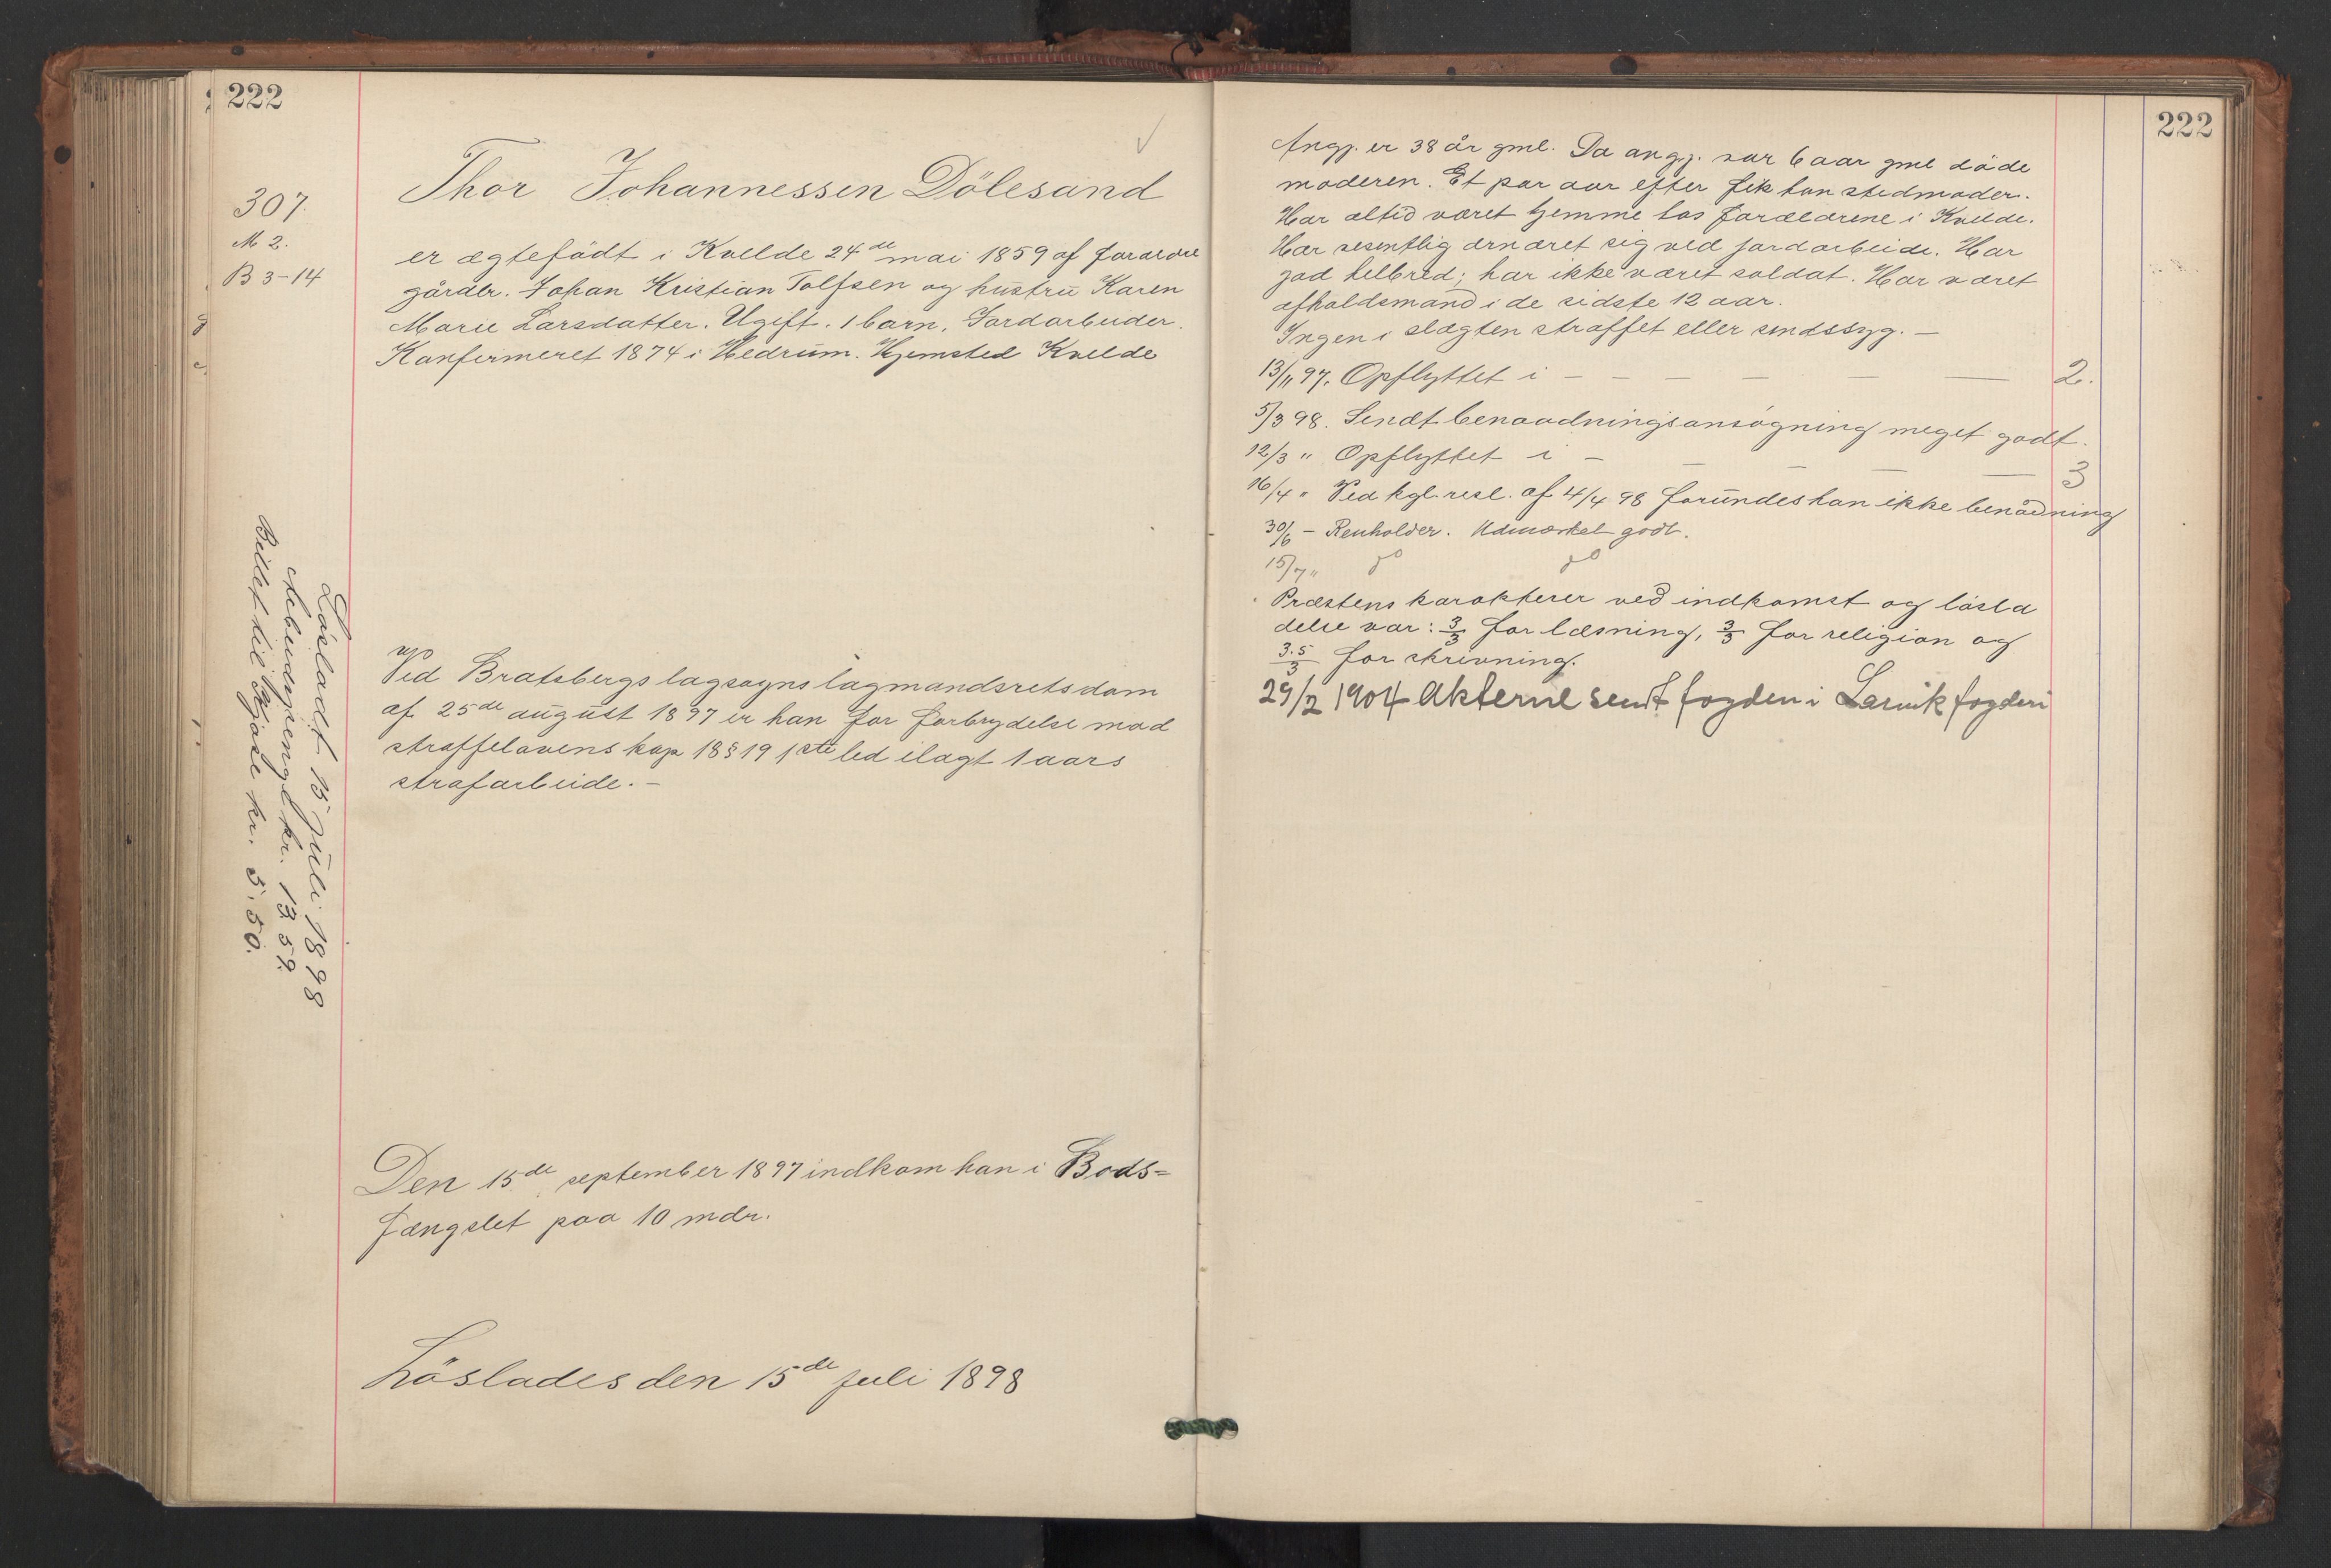 222
307.
M 2.
B 3-14
Thor Johannessen Dölesand
er ægtefödt i Kvelde 24de mai 1859 af forældre
gårdbr. Johan Kristian Tolfsen og hustru Karen
Marie Larsdatter. Ugift. 1 barn. Jordarbeider.
Konfirmeret 1874 i Hedrum. Hjemsted Kvelde
Ved Bratsbergs lagsogns lagmandsrets dom
af 25de august 1897 er han for forbrydelse mod
straffelovens kap 18 § 19 1ste led ilagt 1 aars
strafarbeide. –
Den 15de september 1897 indkom han i Bods=
fængslet paa 10 mdr.
Löslades den 15de juli 1898
Lösladt 15 juli 1898
Arbeidspenge kr. 13.59.
Billet til Kjose kr. 5.50.
222
Angj. er 38 år gml. Da angj. var 6 aar gml döde
moderen. Et par aar efter fik han stedmoder.
Har altid været hjemme hos forældrene i Kvelde.
Har vesentlig ernæret sig ved jordarbeide. Har
god helbred; har ikke været soldat. Har været
afholdsmand i de sidste 12 aar.
Ingen i slægten straffet eller sindssyg. –
13/11 97. Opflyttet i – – – – – – 2.
5/3 98. Sendt benaadningsansögning meget godt.
12/3 " Opflyttet i – – – – – 3
16/4 " Ved kgl. resl. af 4/4 98 forundes han ikke benådning
30/6 – Renholder. Udmærket godt.
15/7 " do do
Præstens karakterer ved indkomst og lösla
delse var: 3/3 for læsning, 3/3 for religion og
3.5/3 for skrivning.
29/2 1904 Akterne sendt fogden i Larvik fogderi